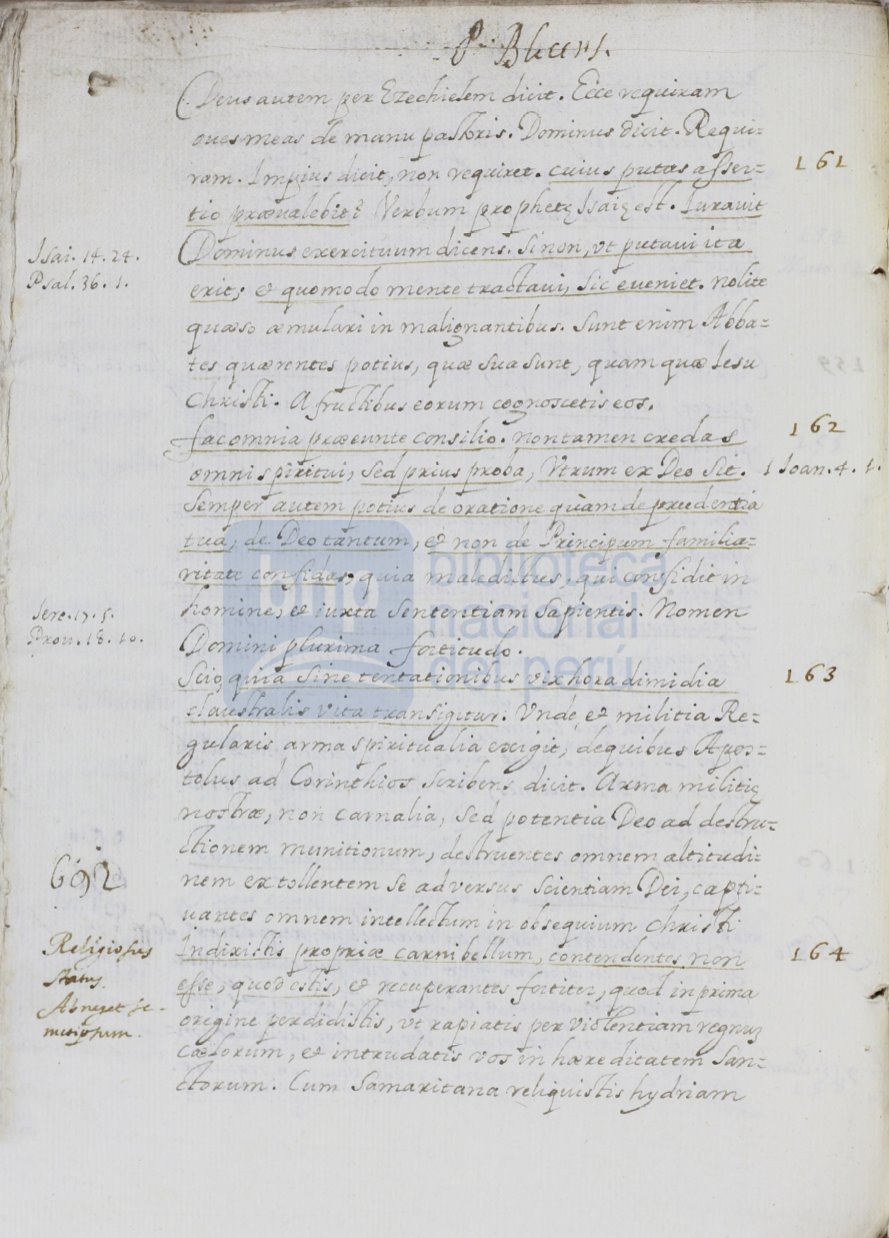 P. Blesens.
Deus autem per Ezechielem dicit. Ecce requiram
oues meas de manu pastoris. Dominus dicit. Requi-
ram. Impius dicit, non requiret. cuius putas asser-
161
tio præualebit? Verbum prophetę Isaię est. Iurauit
Dominus exercituum dicens. Si non, vt putaui ita
Isai. 14. 24.
Psal. 36. 1.
erit; et quomodo mente tractaui, sic eueniet. nolite
quæso æmulari in malignantibus. Sunt enim Abba=
tes quærentes potius, quæ sua sunt, quam quæ Iesu
Christi. A fructibus eorum cognoscetis eos.
fac omnia præeunte consilio. non tamen credas
162
omni spiritui, sed prius proba, Vtrum ex Deo sit.
1 Ioan. 4. 1.
Semper autem potius de oratione quàm de prudentia
tua, de Deo tantum, et non de Principum familia=
ritate confidas, quia maledictus, qui confidit in
homine, et iuxta sententiam Sapientis. Nomen
Iere. 17. 5.
Prou. 18. 10.
Domini plurima fortitudo.
Scio, quia sine tentationibus vix hora dimidia
163
claustralis vita transigitur. Vnde, et militia Re=
gularis arma spiritualia exigit, de quibus Apos=
tolus ad Corinthios scribens, dicit. Arma militię
nostræ, non carnalia, sed potentia Deo ad destru-
ctionem munitionum, destruentes omnem altitudi=
nem extollentem se adversus scientiam Dei, capti=
692
uantes omnem intellectum in obsequium Christi
Indixistis propriæ carni bellum, contendentes non
164
Religiosus
Status.
Abneget se-
metipsum.
esse, quod estis, et recuperantes fortiter, quod in prima
origine perdidistis, vt rapiatis per violentiam regnuȝ
cælorum, et intrudatis vos in hæreditatem San=
ctorum. Cum Samaritana reliquistis hydriam
biblioteca
nacional
del perú
bnp